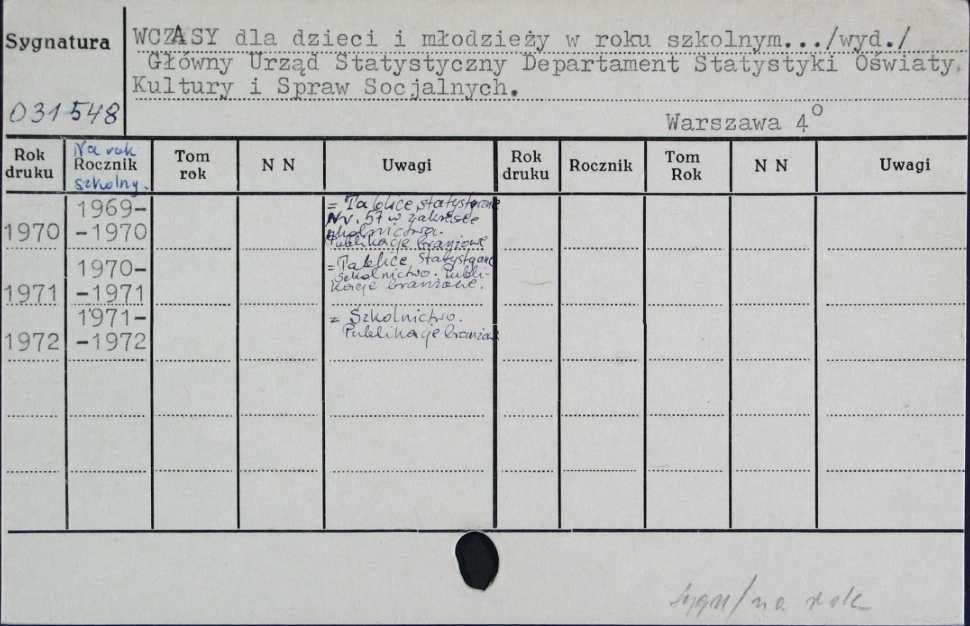 Sygnatura
WCZASY dla dzieci i młodzieży w roku szkolnym.../wyd./
Główny Urząd Statystyczny Departament Statystyki Oświaty.
Kultury i Spraw Socjalnych.
031548
Warszawa 4o
Rok druku
Na rok
Rocznik
szkolny.
Tom rok
N N
Uwagi
Rok druku
Rocznik
Tom Rok
N N
Uwagi
1970
1969-
-1970
= Tablice statystyczne
Nr. 57 w zakresie
szkolnictwa.
Publikacje branżowe
1971
1970-
-1971
= Tablice statystyczne
Szkolnictwo. Publi-
kacje branżowe.
1972
1971-
-1972
= Szkolnictwo.
Publikacje branżowe
sygn/na rok